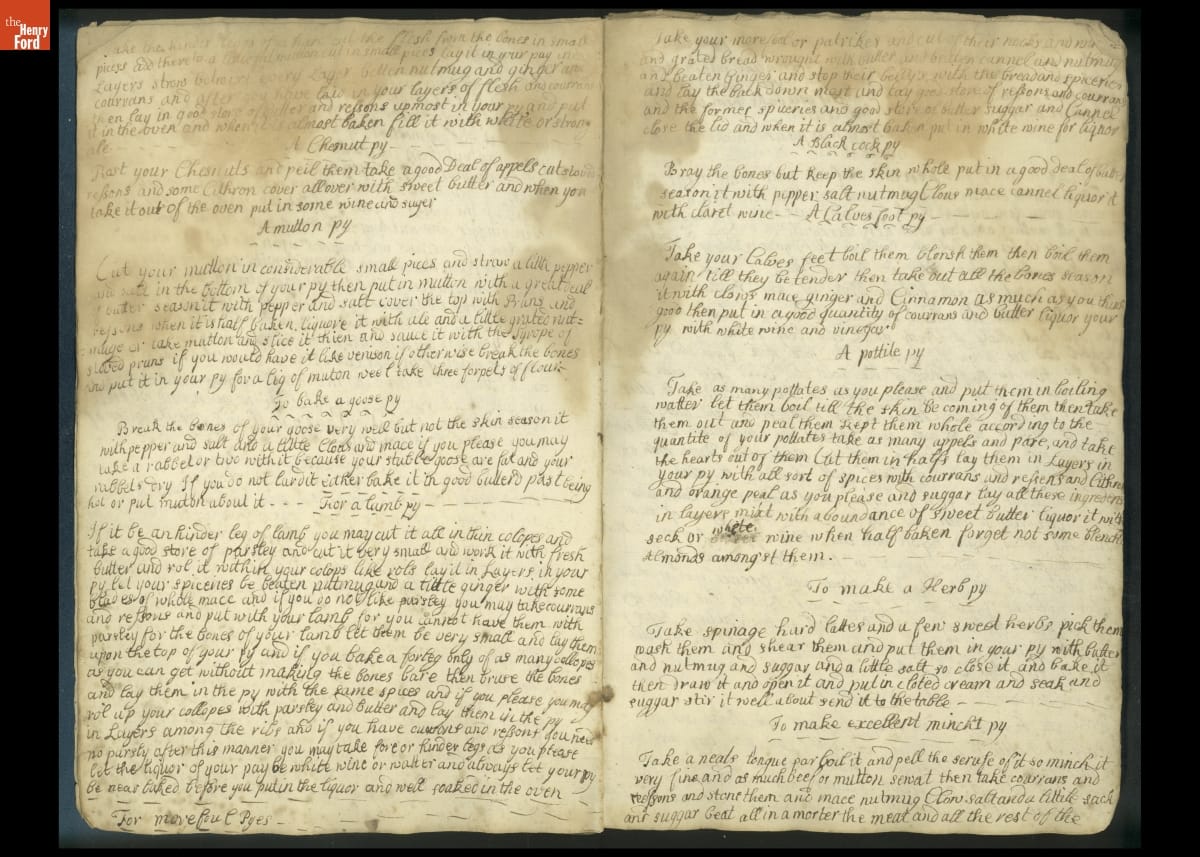 the Henry Ford
Take the hinder legs of a hare cut the flesh from the bones in small
pices add there to a little of mutton cut in small pices lay it in your py in
Layers strow betwixt every Layer betten nutmug and ginger and
courrans and after you have laid in your layers of flesh and courrans
then lay in good store of butter and ressons upmost in your py and put
it in the oven and when it is almost baken fill it with white or strong
ale
A Chesnut py
Rost your Chesnuts and peil them take a good Deal of appels cut stoned
ressons and some Cithron cover all over with sweet butter and when you
take it out of the oven put in some wine and suger
A mutton py
Cut your mutton in considerable small pices and straw a little pepper
and salt in the bottom of your py then put in mutton with a great deal
butter season it with pepper and satt cover the top with Pruns and
ressons when it is half baken, liquore it with ale and a little grated nut-
muge or take mutton and slice it thien and sauce it with the Syrope of
stoved pruns if you would have it like venison if otherwise break the bones
and put it in your py for a leg of muton weel take three forpets of flour
To bake a goose py
Break the bones of your goose very well but not the skin season it
with pepper and salt and a little Cloas and mace if you please you may
take a rabbet or two with it because your stubble goose are fat and your
rabbets dry If you do not lard it either bake it in good butterd past being
hot or put muton about it - - -
For a lamb py
If it be an hinder leg of lamb you may cut it all in thin colopes and
take a good store of parsley and cut it very small and work it with fresh
butter and rol it within your colops like rols lay it in Layers in your
py let your spiceries be beaten nuttmug and a little ginger with some
blades of whole mace and if you do not like parsley you may take courrans
and ressons and put with your lamb for you cannot have them with
parsley for the bones of your lamb let them be very small and lay them
upon the top of your py and if you bake a forleg only of as many collopes
as you can get without making the bones bare then bruse the bones
and lay them in the py with the same spices and if you please you may
rol up your collopes with parsley and butter and lay them in the py
in Layers among the ribs and if you have currons and ressons you need
no parsly after this manner you may take fore or hinder legs as you please
let the liquor of your pay be white wine or watter and always let your py
be near baked before you put in the liquor and well soaked in the oven
For morefoul Pyes
Take your morefool or patrikes and cut of their necks and
and grated bread wrought with buter and betten cannel and nutmug
and beaten Ginger and stop their bellys with the bread and spiceries
and lay the back down most and lay good store of ressons and courrans
and the former spiceries and good store of butter suggar and Cannel
close the lid and when it is almost baken put in white wine for liquor
A Black cock py
Bray the bones but keep the skin whole put in a good deal of butter
season it with pepper salt nutmug Clous mace cannel liquor it
with claret wine - -
A Calves foot py
Take your Calves feet boil them blensh them then boil them
again till they be tender then take out all the bones season
it with cloves mace ginger and Cinnamon as much as you think
good then put in a good quantity of courrans and butter liquor your
py with white wine and vinegar
A pottile py
Take as many pottates as you please and put them in boiling
watter let them boil till the skin be coming of them then take
them out and peal them kept them whole according to the
quantite of your pottates take as many appels and pare, and take
the hearts out of them Cut them in halfs lay them in Layers in
your py with all sort of spices with courrans and ressens and Cithron
and orange peal as you please and suggar lay all these ingredens
in layers mixt with aboundance of sweet butter liquor it with
seck or white wine when half baken forget not some blencht
almonds amongst them.
To make a Herb py
Take spinage hard lattes and a few sweet herbs pick them
wash them and shear them and put them in your py with butter
and nutmug and suggar and a little salt so close it and bake it
then draw it and open it and put in cloted cream and seak and
suggar stir it well about send it to the table
To make excellent mincht py
Take a neals tongue parboil it and pell the scruse of it so minch it
very fine and as much beef or mutton sewat then take courrans and
ressons and stone them and mace nutmug Clow salt and a little sack
and suggar beat all in a morter the meat and all the rest of the